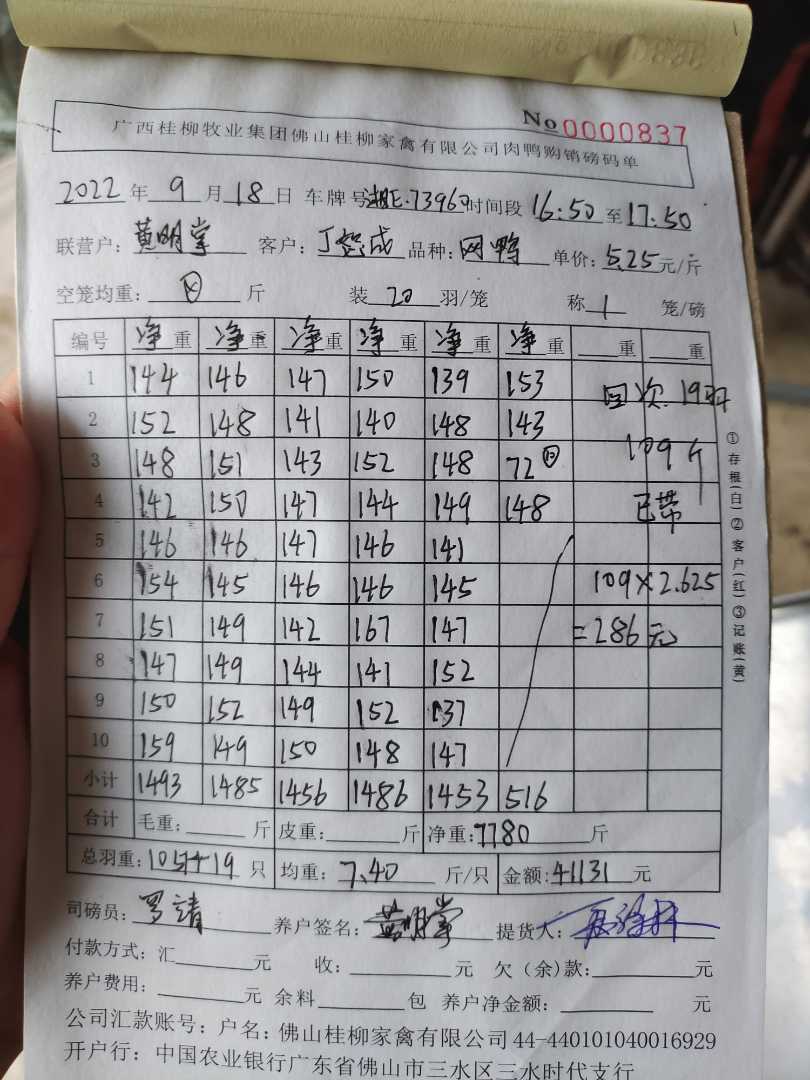 No 0000837
广西桂柳牧业集团佛山桂柳家禽有限公司肉鸭购销磅码单
2022年9月18日 车牌号湘E·73960时间段16:50至17:50
联营户:黄明掌 客户:丁 成 品种:网鸭 单价:5.25元/斤
空笼均重: 斤 装20羽/笼 称1笼/磅
编号 净重 净重 净重 净重 净重 净重 重 重
1 144 146 147 150 139 153 回次 19羽
2 152 148 141 140 148 143 109斤
3 148 151 143 152 148 72
4 142 150 147 144 149 148 已带
5 146 146 147 146 141
6 154 145 146 146 145 109×2.625
7 151 149 142 167 147 =286元
8 147 149 144 141 152
9 150 152 149 152 137
10 159 149 150 148 147
小计 1493 1485 1456 1486 1453 516
合计 毛重: 斤 皮重: 斤 净重:7780斤
总羽重: 只 均重:7.40斤/只 金额:41131元
司磅员:罗靖 养户签名:黄明掌 提货人:
付款方式:汇 元 收: 元 欠(余)款: 元
养户费用: 元 余料 包 养户净金额: 元
公司汇款账号:户名:佛山桂柳家禽有限公司44-440101040016929
开户行:中国农业银行广东省佛山市三水区三水时代支行
①存根(白)②客户(红)③记账(黄)